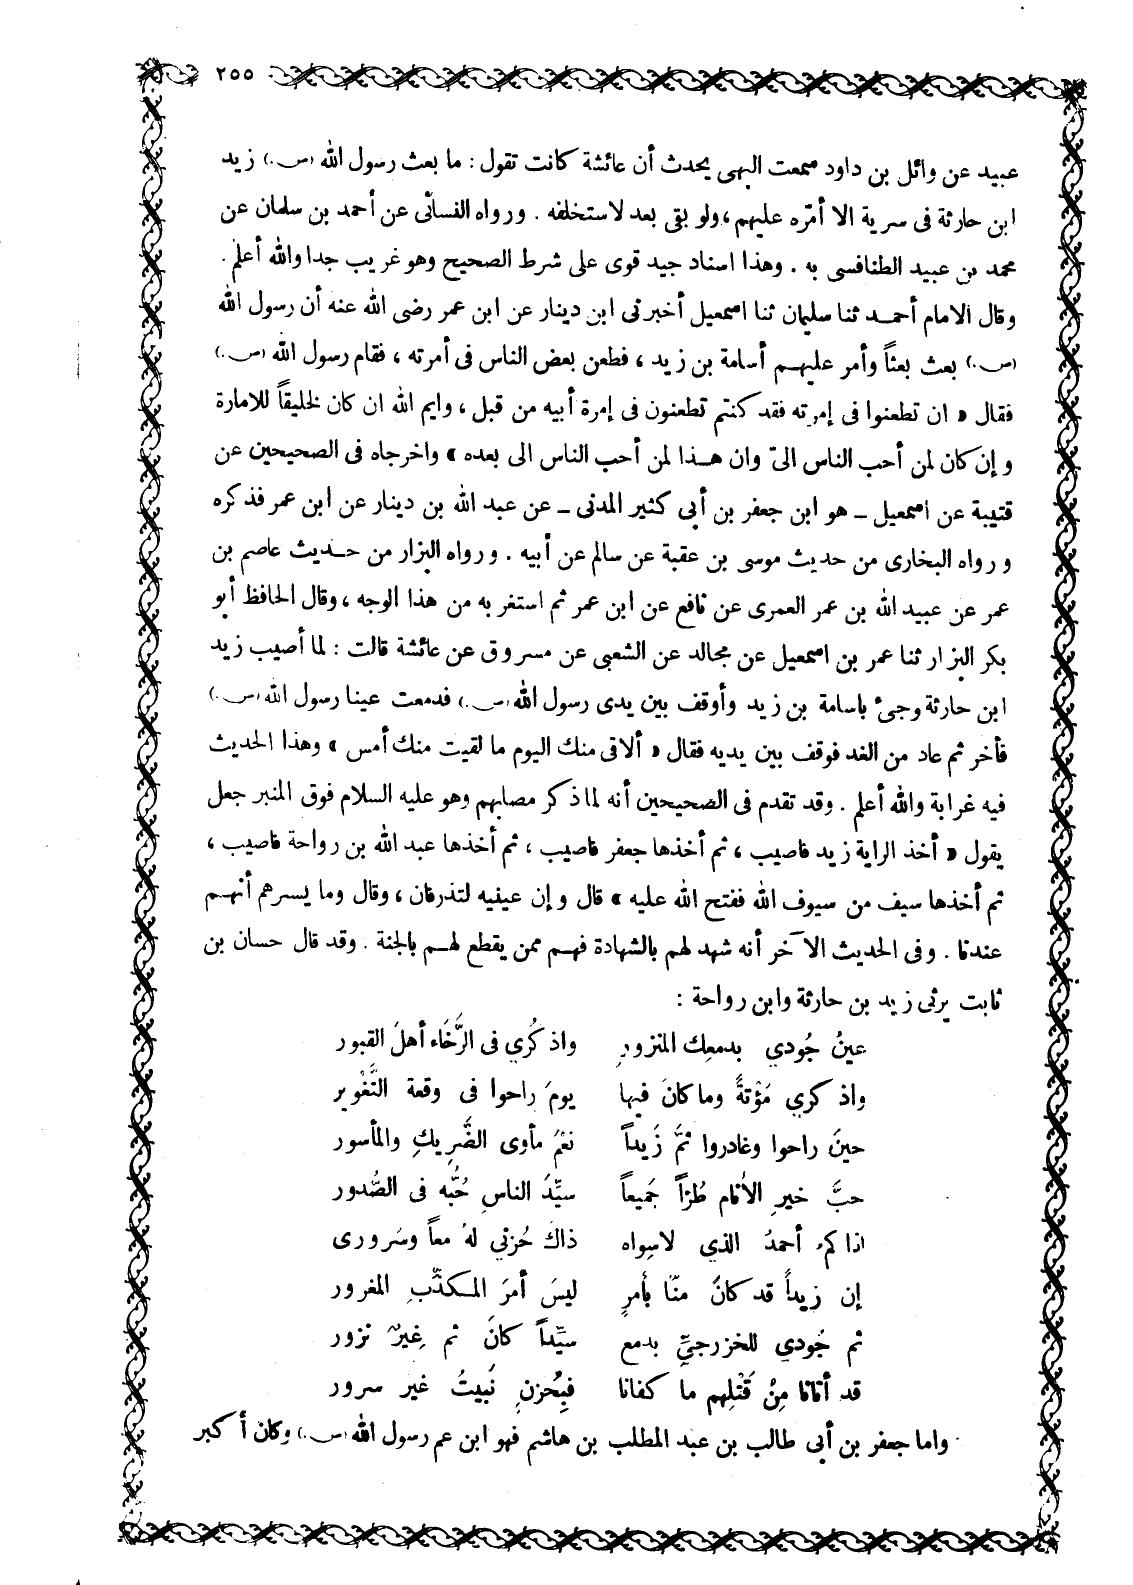 ٢٥٥
عبيد عن وائل بن داود سمعت البهى يحدث أن عائشة كانت تقول : ما بعث رسول الله (س.) زيد
ابن حارثة فى سرية الا أمّره عليهم، ولو بقى بعد لاستخلفه . ورواه النسائى عن أحمد بن سلمان عن
محمد بن عبيد الطنافسى به . وهذا اسناد جيد قوى على شرط الصحيح وهو غريب جدا والله أعلم .
وقال الامام أحمد ثنا سليمان ثنا اسمعيل أخبرنى ابن دينار عن ابن عمر رضى الله عنه أن رسول الله
(س.) بعث بعثاً وأمر عليهم أسامة بن زيد ، فطعن بعض الناس فى أمرته ، فقام رسول الله (س.)
فقال « ان تطعنوا فى إمرته فقد كنتم تطعنون فى إمرة أبيه من قبل ، وايم الله ان كان لخليقاً للامارة
وإن كان لمن أحب الناس الىّ وان هذا لمن أحب الناس الى بعده » واخرجاه فى الصحيحين عن
قتيبة عن اسمعيل ـ هو ابن جعفر بن أبى كثير المدنى ـ عن عبد الله بن دينار عن ابن عمر فذكره
ورواه البخارى من حديث موسى بن عقبة عن سالم عن أبيه . ورواه البزار من حديث عاصم بن
عمر عن عبيد الله بن عمر العمرى عن نافع عن ابن عمر ثم استغر به من هذا الوجه ، وقال الحافظ أبو
بكر البزار ثنا عمر بن اسمعيل عن مجالد عن الشعبى عن مسروق عن عائشة قالت : لما أصيب زيد
ابن حارثة وجىء باسامة بن زيد وأوقف بين يدى رسول الله (س.) فدمعت عينا رسول الله (س.)
فأخر ثم عاد من الغد فوقف بين يديه فقال « ألاقى منك اليوم ما لقيت منك أمس » وهذا الحديث
فيه غرابة والله أعلم . وقد تقدم فى الصحيحين أنه لما ذكر مصابهم وهو عليه السلام فوق المنبر جعل
يقول « أخذ الراية زيد فاصيب ، ثم أخذها جعفر فاصيب ، ثم أخذها عبد الله بن رواحة فاصيب ،
ثم أخذها سيف من سيوف الله ففتح الله عليه » قال وإن عينيه لتذرفان ، وقال وما يسرهم أنهم
عندنا . وفى الحديث الآخر أنه شهد لهم بالشهادة فهم ممن يقطع لهم بالجنة . وقد قال حسان بن
ثابت يرثى زيد بن حارثة وابن رواحة :
عينُ جُودي بدمعِك المنزورِ واذكُري فى الرَّخَاء أهلَ القبور
واذكري مَؤْتةً وما كانَ فيها يومَ راحوا فى وقعة التَّغْوير
حينَ راحوا وغادروا ثَمَّ زَيداً نعْمَ مأوى الضَّرِيكِ والمأسور
حبَّ خيرِ الأنام طُرّاً جَميعاً سيِّدَ الناسِ حُبُّه فى الصُّدور
اذا كم أحمدُ الذي لاسِواه ذاكَ حُزني لهُ معاً وسَرورى
إن زيداً قد كانَ منّا بأمرٍ ليسَ أمرَ المكذّبِ المغرور
ثم جُودي للخزرجيِّ بدمع سيِّداً كانَ ثم غيرَ نزور
قد أتانا مِنْ قَتْلِهم ما كفانا فبِحُزنٍ نَبيتُ غير سرور
واما جعفر بن أبى طالب بن عبد المطلب بن هاشم فهو ابن عم رسول الله (س.) وكان أكبر